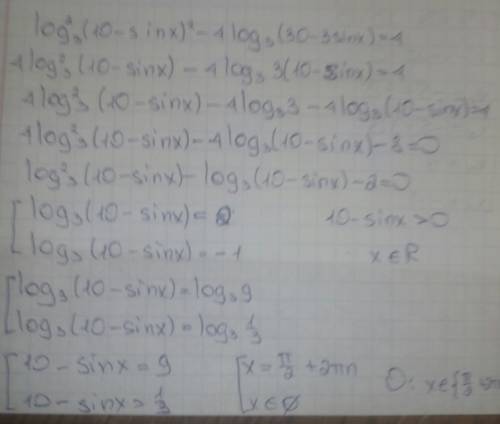 log²₃(10-sinx)² - 4log₃(30-3sinx)=4
4log²₃(10-sinx) - 4log₃3(10-sinx)=4
4log²₃(10-sinx) - 4log₃3 - 4log₃(10-sinx)=4
4log²₃(10-sinx) - 4log₃(10-sinx) - 8=0
log²₃(10-sinx) - log₃(10-sinx) - 2=0
[ log₃(10-sinx)=2 10-sinx>0
log₃(10-sinx)=-1 x∈R
[ log₃(10-sinx)=log₃9
log₃(10-sinx)=log₃ 1/3
[ 10-sinx=9 [ x=π/2+2πn O: x∈{π/2
10-sinx=1/3 x∈∅